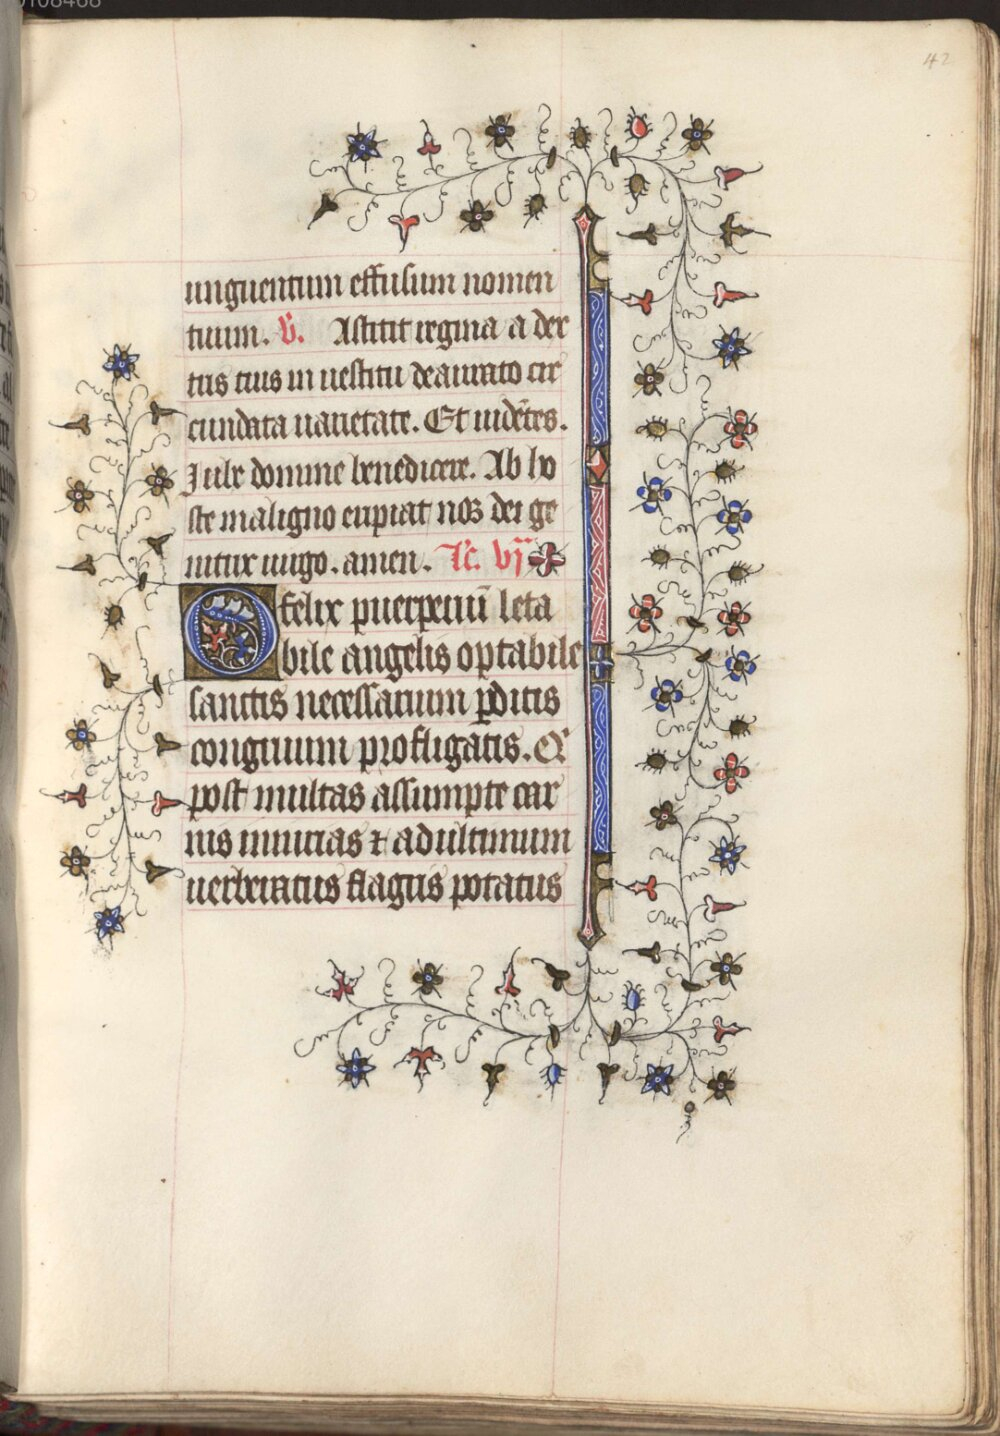 42
unguentum effusum nomen
tuum. v̄. Astitit regina a dex
tris tuis in uestitu deaurato cir
cundata uarietate. Et uidētes.
Iube domine benedicere. Ab ho
ste maligno eripiat nos dei ge
nitrix uirgo. amen. Lc̄. vj
O felix puerperiū leta
bile angelis optabile
sanctis necessarium ꝑditis
congruum profligatis. Et
post multas assumpte car
nis iniurias ⁊ ad ultimum
uerberatus flagris potatus